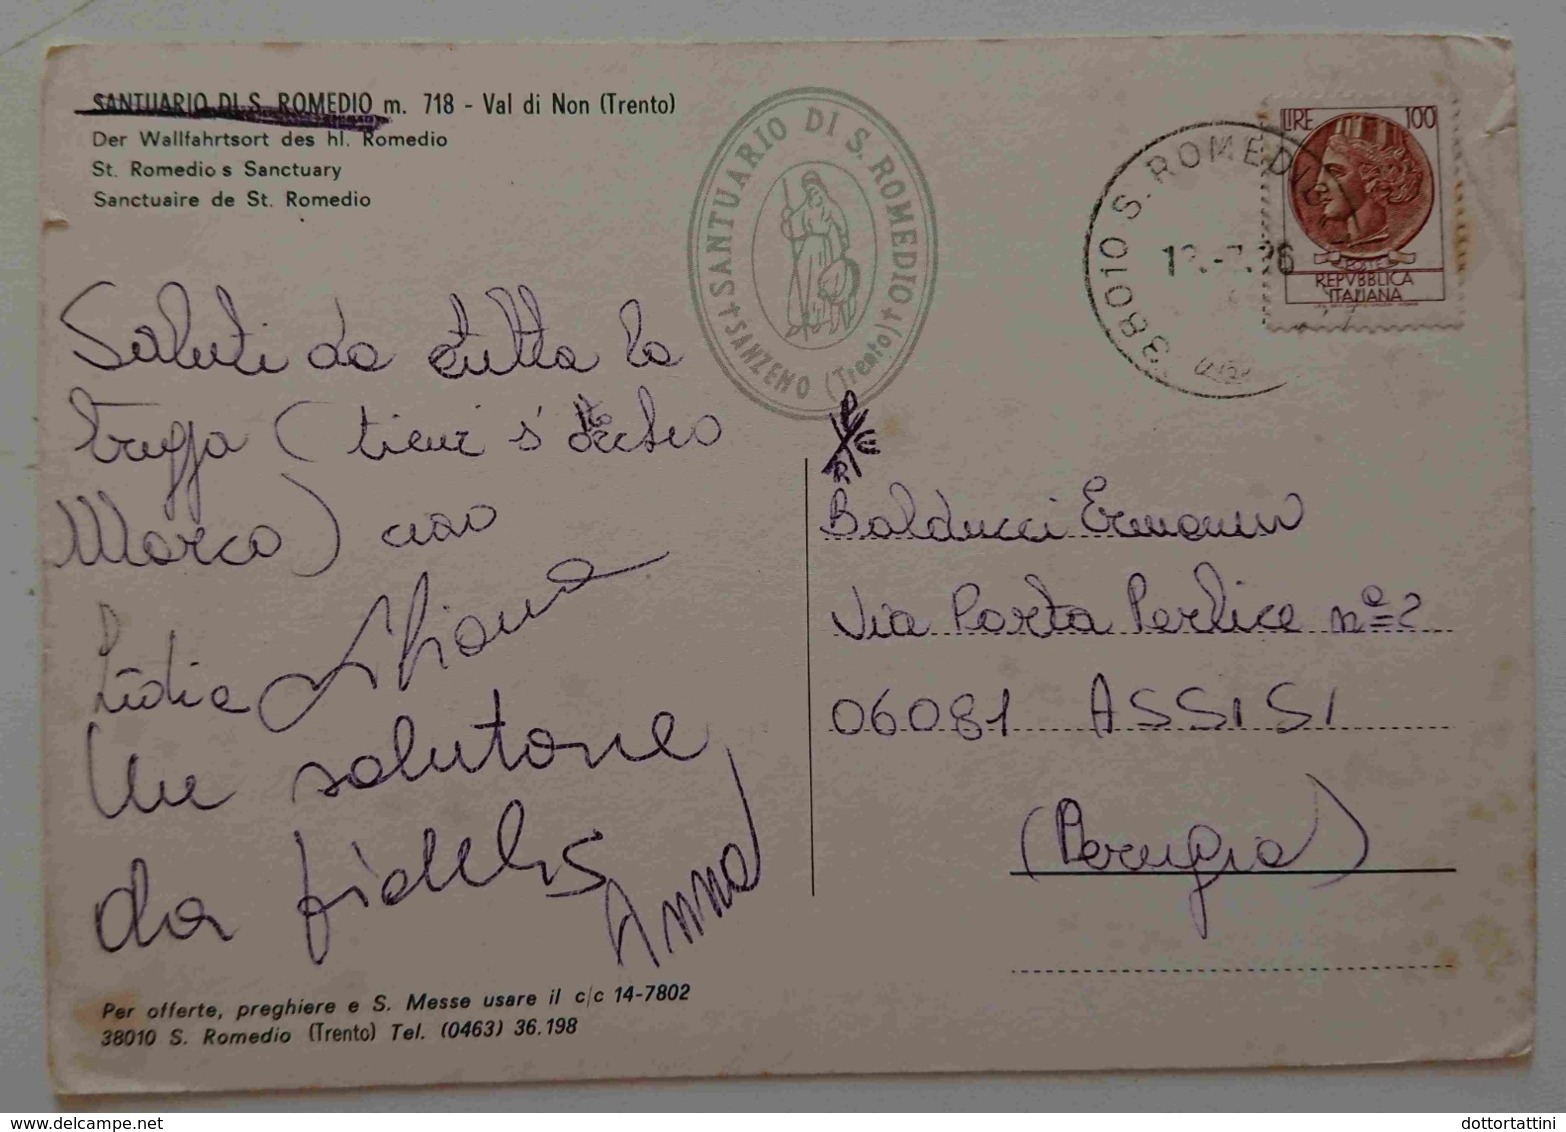 SANTUARIO DI S. ROMEDIO m. 718 - Val di Non (Trento)
Der Wallfahrtsort des hl. Romedio
St. Romedio s Sanctuary
Sanctuaire de St. Romedio
SANTUARIO DI S. ROMEDIO
SANZENO (Trento)
38010 S. ROMEDIO
LIRE 100
POSTE
REPVBBLICA
ITALIANA
Saluti da tutta la
truppa (tieni s'
Marco) ciao
Lidia
Un salutone
da fidelis
Anna
P
E
R
Balducci Ermanno
Via Porta Perlice n° 2
06081 ASSISI
(Perugia)
Per offerte, preghiere e S. Messe usare il c/c 14-7802
38010 S. Romedio (Trento) Tel. (0463) 36.198
www.delcampe.net
dottortattini